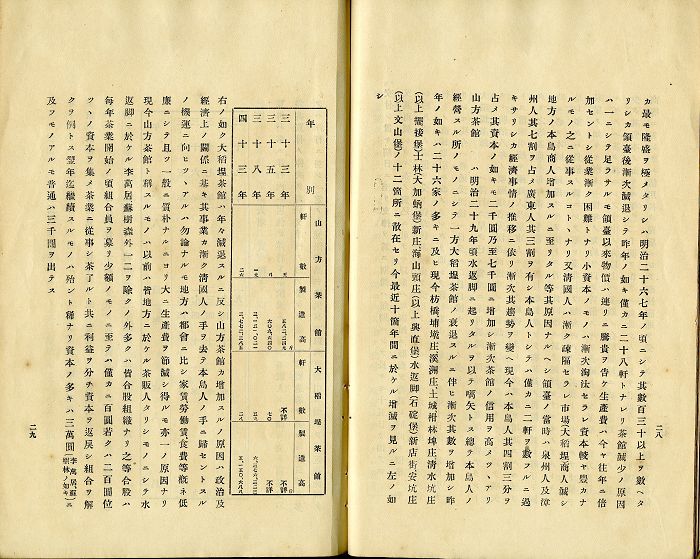 二八
カ最モ隆盛ヲ極メタリシハ明治二十六七年ノ頃ニシテ其數百三十以上ヲ數ヘタ
リシカ領臺後漸次減退シテ昨年ノ如キ僅カニ二十八軒トナレリ茶館減少ノ原因
ハ一ニシテ足ラサルモ領臺以來物價ハ連リニ騰貴ヲ告ケ生產費ハ今ヤ往年ニ倍
加セントシ從業漸ク困難トナリ小資本ノモノハ漸次淘汰セラレ資本較ヤ豐カナ
ルモノノミ之ニ從事スルコトヽナリ又清國人ハ漸ク疎隔セラレ市場大稻埕商人減シ
地方ノ本島商人增加スルニ至リタル等其原因ナルヘシ領臺ノ當時ハ泉州人及漳
州人其七割ヲ占メ廣東人其三割ヲ有シ本島人トシテハ僅カニ二軒ヲ數フルニ過
キサリシカ經濟事情ノ推移ニ依リ漸次其趨勢ヲ變ヘ現今ハ本島人其四割三分ヲ
占メ其資本ノ如キモ二千圓乃至七千圓ニ增加シ漸次茶館ノ信用ヲ高メツヽアリ
山方茶館 ハ明治二十九年頃水返脚ニ起リタルヲ以テ嚆矢トス總テ本島人ノ
經營スル所ノモノニシテ一方大稻埕茶館ノ衰退スルニ伴ヒ漸次其數ヲ增加シ昨
年ノ如キハ二十六家ノ多キニ及ヒ現今枋橋埔墘庄溪洲庄、土城柑林埤庄清水坑庄
(以上擺接堡)士林大加蚋堡)新庄海山頭庄(以上興直堡)水返脚(石碇堡)新店街安坑庄
(以上文山堡)ノ十二箇所ニ散在セリ今最近十箇年間ニ於ケル增減ヲ見ルニ左ノ如
シ
年別
山方茶館
軒數
製造高
大稻埕茶館
軒數
製造高
三十三年
不詳
不詳
三十八年
七〇
不詳
四十三年
右ノ如ク大稻埕茶館ハ年々減退スルニ反シ山方茶館カ增加スルノ原因ハ政治及
經濟上ノ關係ニ基キ其事業カ漸ク清國人ノ手ヲ去テ本島人ノ手ニ歸セントスル
ノ機運ニ向ヒツヽアルハ勿論ナルモ地方ハ都會ニ比シ家賃勞働賃食費等概ネ低
廉ニシテ且ツ一般ニ質朴ナルニヨリ大ニ生產費ヲ節減シ得ルモ亦一ノ原因ナリ
現今山方茶館ト稱スルモノハ以前ハ皆地方ニ於ケル茶販人タリシモノニシテ水
返脚ニ於ケル李萬居蘇樹森外一二ヲ除クノ外多クハ皆合股組織ナリ之等合股ハ
每年茶業開始ノ頃組合員ヲ募リ少額ノモノニ至テハ僅カニ百圓若クハ二百圓位
ツヽノ資本ヲ集メ茶業ニ從事シ茶了ルト共ニ利益ヲ分チ資本ヲ返戾シ組合ヲ解
クヲ例トス翌年迄繼續スルモノハ殆ント稀ナリ資本ノ多キハ三萬圓(李萬居、蘇樹林ノ如キ)ニ
及フモノアルモ普通ハ三千圓ヲ出テス
二九